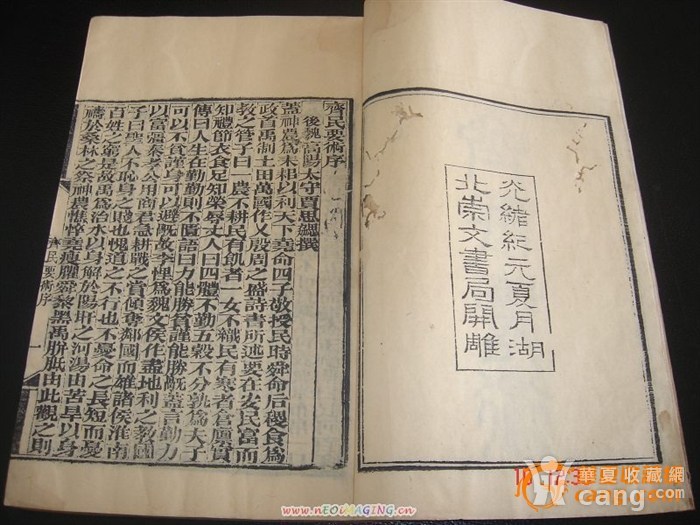 光緒紀元夏月湖
北崇文書局開雕
齊民要術序
後魏高陽太守賈思勰撰
蓋神農爲耒耜以利天下堯命四子敬授民時舜命后稷食爲
政首禹制土田萬國作乂殷周之盛詩書所述要在安民富而
教之管子曰一農不耕民有飢者一女不織民有寒者倉廩實
知禮節衣食足知榮辱丈人曰四體不勤五穀不分孰爲夫子
傳曰人生在勤勤則不匱語曰力能勝貧謹能勝禍蓋言勤力
可以不貧謹身可以避禍故李悝爲魏文侯作盡地利之教國
以富強秦孝公用商君急耕戰之賞傾奪鄰國而雄諸侯淮南
子曰聖人不恥身之賤也愧道之不行也不憂命之長短而憂
百姓之窮是故禹爲治水以身解於陽盱之河湯由苦旱以身
禱於桑林之祭神農憔悴堯瘦臞舜黎黑禹胼胝由此觀之則
齊民要術序
一
華夏收藏網
cang.com
www.nEOiMAGING.cn